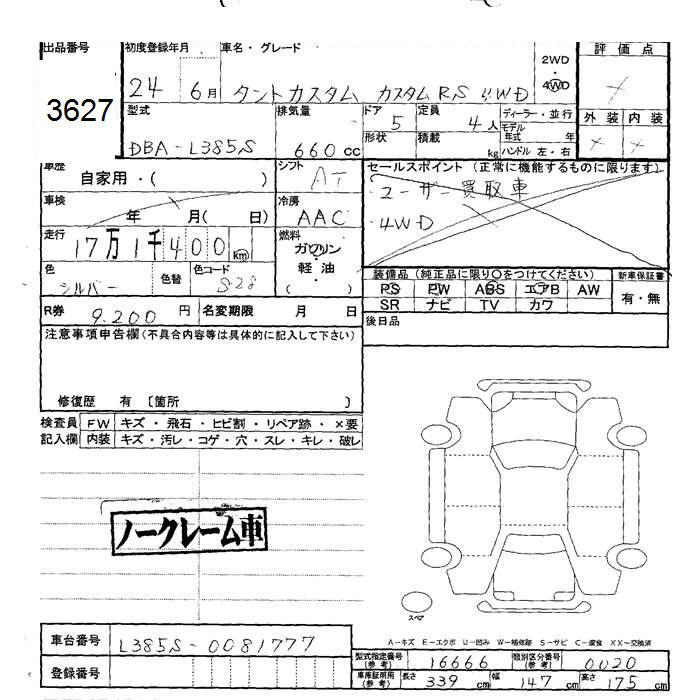 出品番号 初度登録年月 車名・グレード 2WD 評価点
3627 24 6月 タントカスタム カスタムRS 4WD 4WD
型式 排気量 ドア 定員 ディーラー・並行 外装 内装
5 4人 モデル年式 年
DBA-L385S 660cc 形状 積載 kg ハンドル 左・右
車歴 自家用・( ) シフト AT セールスポイント (正常に機能するものに限ります)
ユーザー買取車
車検 年 月( 日) 冷房 AAC 4WD
走行 17万1千400km 燃料 ガソリン
軽油
( )
色 シルバー 色替 色コード S28 装備品 (純正品に限り○をつけてください) 新車保証書
PS PW ABS エアB AW 有・無
SR ナビ TV カワ
R券 9.200円 名変期限 月 日 後日品
注意事項申告欄(不具合内容等は具体的に記入して下さい)
修復歴 有 〔箇所 〕
検査員 FW キズ・飛石・ヒビ割・リペア跡・×要
記入欄 内装 キズ・汚レ・コゲ・穴・スレ・キレ・破レ
ノークレーム車
スペア
A-キズ E-エクボ U-凹み W-補修跡 S-サビ C-腐食 XX-交換済
車台番号 L385S-0081777
型式指定番号(参考) 16666 類別区分番号(参考) 0020
登録番号
車庫証明用(参考) 長さ 339cm 幅 147cm 高さ 175cm